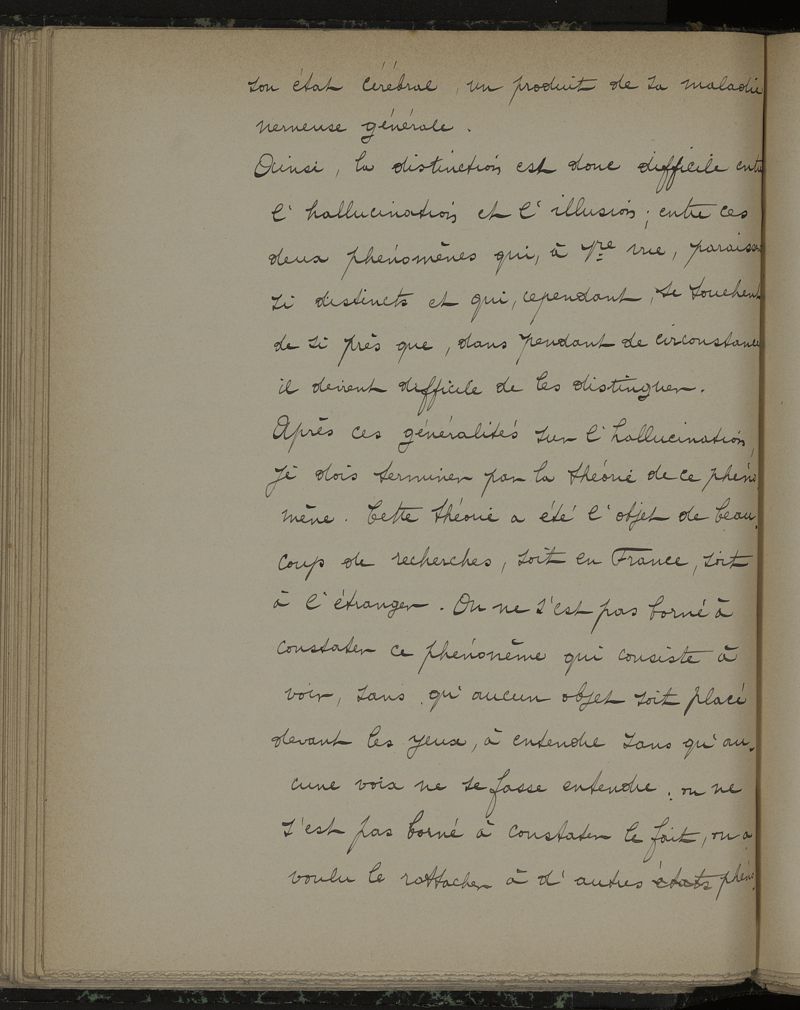 son état cérébral, un produit de sa maladie
nerveuse générale.
Ainsi, la distinction est donc difficile entre
l'hallucination et l'illusion; entre ces
deux phénomènes qui, à 1re vue, paraissent
si distincts et qui, cependant, se touchent
de si près que, dans pendant de circonstances
il devient difficile de les distinguer.
Après ces généralités sur l'hallucination,
je dois terminer par la théorie de ce phéno-
mène. Cette théorie a été l'objet de beau-
coup de recherches, soit en France, soit
à l'étranger. On ne s'est pas borné à
constater ce phénomène qui consiste à
voir, sans qu'aucun objet soit placé
devant les yeux, à entendre sans qu'au-
cune voix ne se fasse entendre; on ne
s'est pas borné à constater le fait, on a
voulu le rattacher à d'autres états phéno-